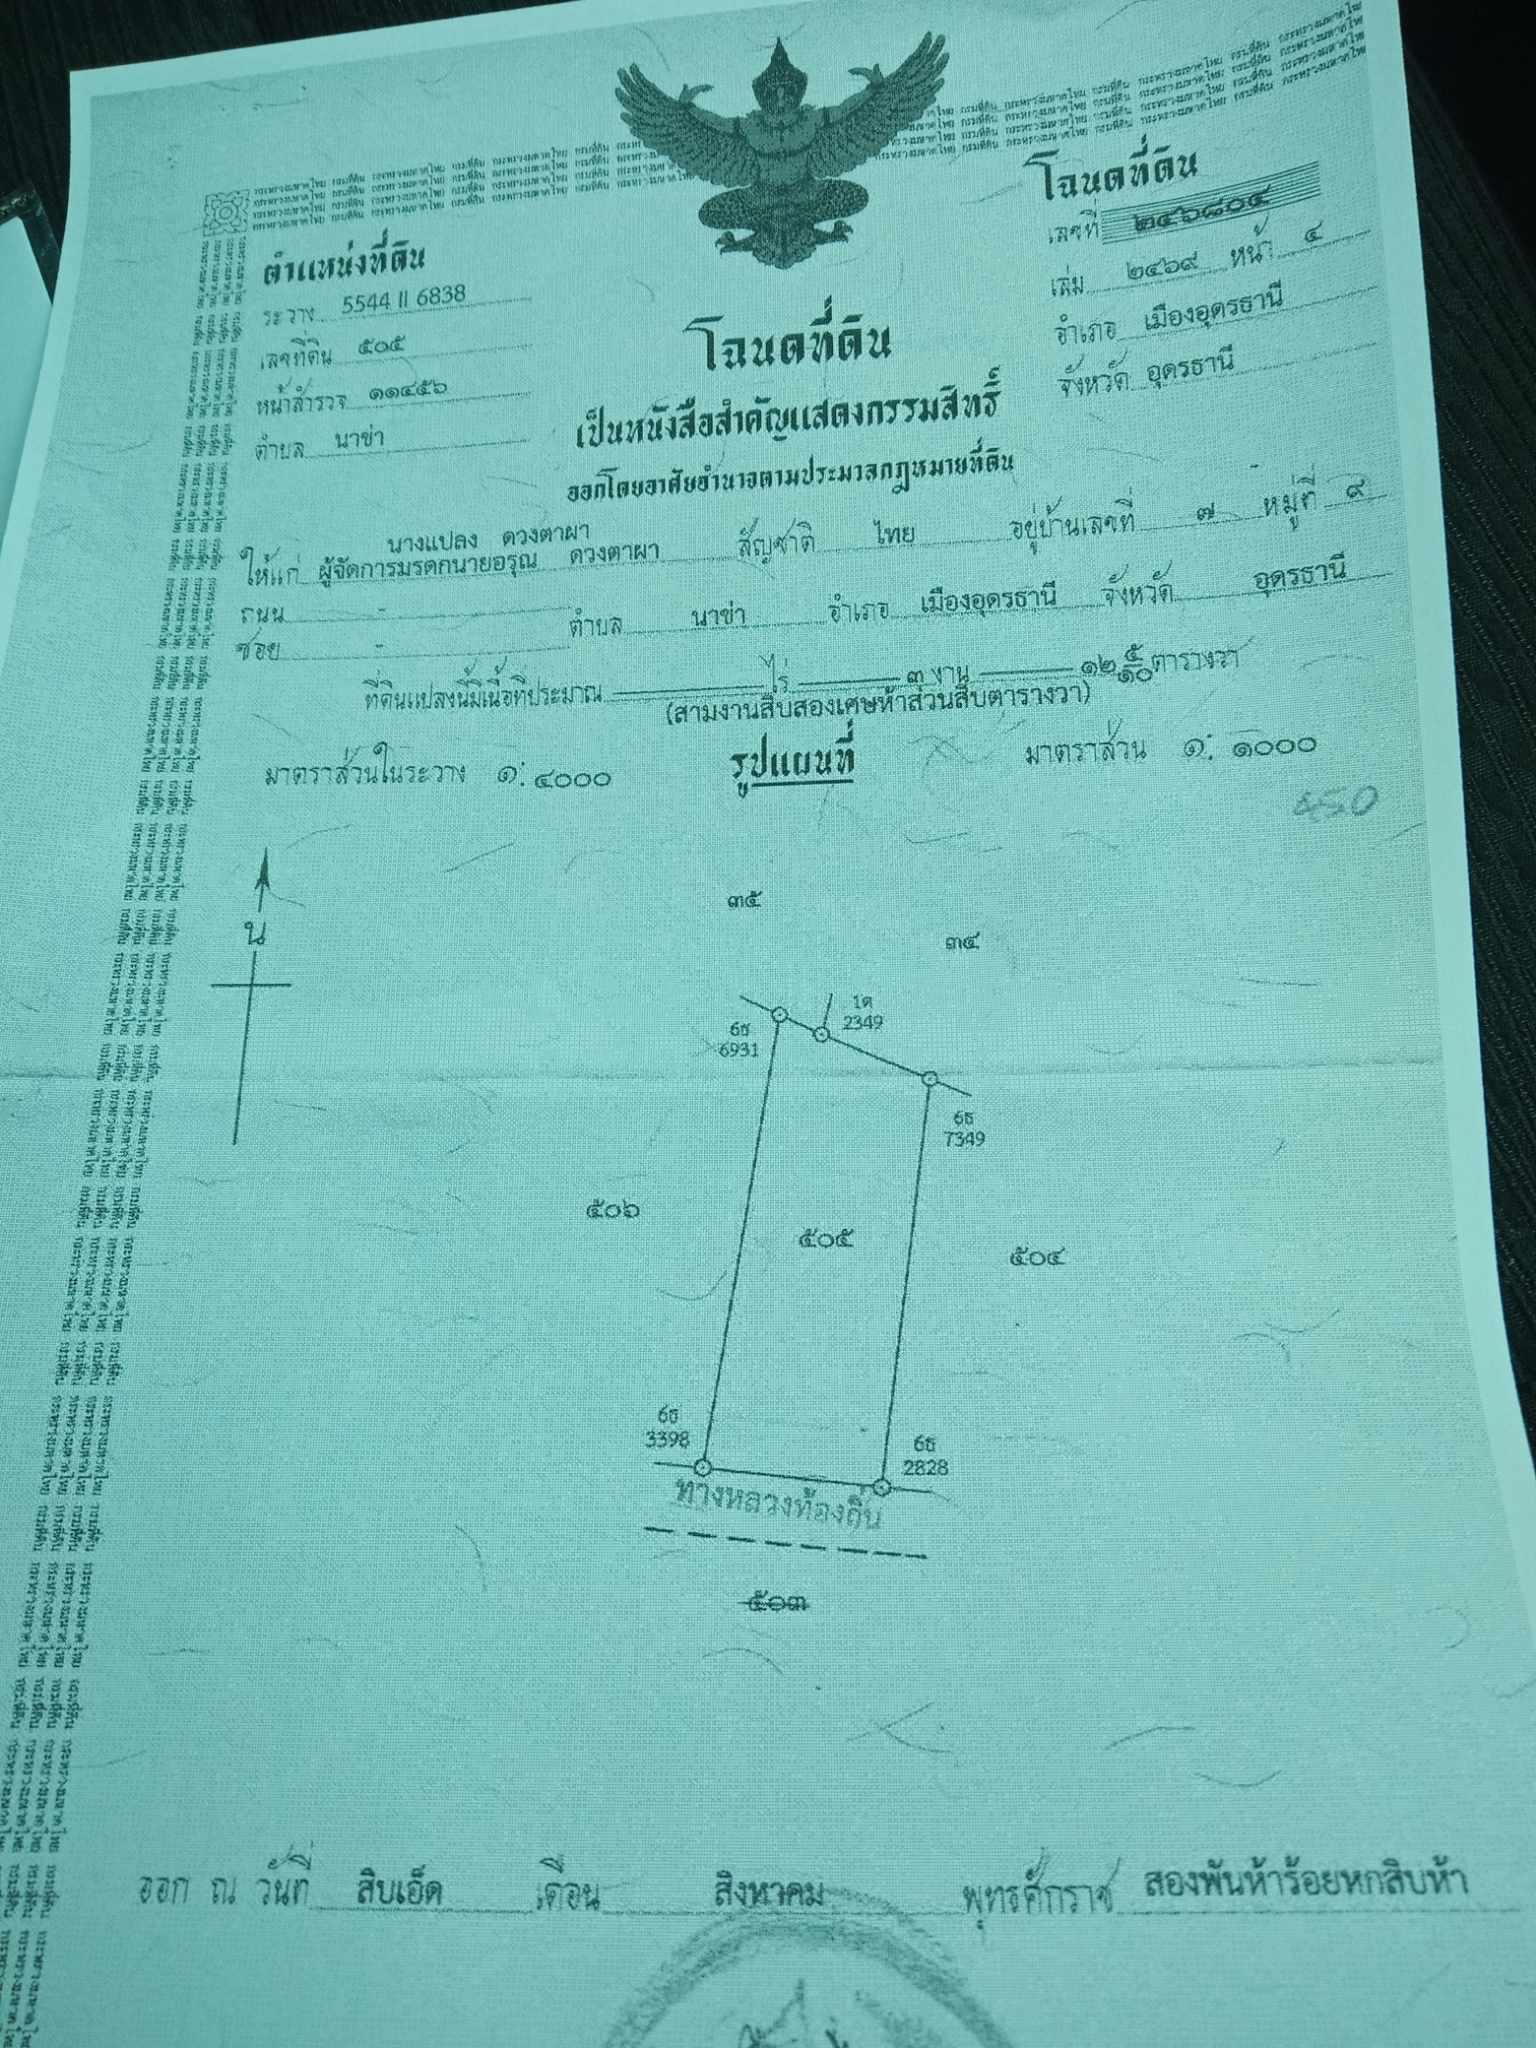 ตำแหน่งที่ดิน
ระวาง 5544 II 6838
เลขที่ดิน ๕๐๕
หน้าสำรวจ ๑๑๔๕๖
ตำบล นาข่า
โฉนดที่ดิน
เลขที่ ๒๔๖๘๐๔
เล่ม ๒๔๖๙ หน้า ๔
อำเภอ เมืองอุดรธานี
จังหวัด อุดรธานี
โฉนดที่ดิน
เป็นหนังสือสำคัญแสดงกรรมสิทธิ์
ออกโดยอาศัยอำนาจตามประมวลกฎหมายที่ดิน
นางแปลง ดวงตาผา
ให้แก่ ผู้จัดการมรดกนายอรุณ ดวงตาผา สัญชาติ ไทย อยู่บ้านเลขที่ ๗ หมู่ที่ ๙
ถนน - ตำบล นาข่า อำเภอ เมืองอุดรธานี จังหวัด อุดรธานี
ซอย -
ที่ดินแปลงนี้มีเนื้อที่ประมาณ ไร่ ๓ งาน ๑๒ ๕/๑๐ ตารางวา
(สามงานสิบสองเศษห้าส่วนสิบตารางวา)
มาตราส่วนในระวาง ๑: ๔๐๐๐ รูปแผนที่ มาตราส่วน ๑: ๑๐๐๐
น
๓๕
๓๔
6ธ
6931
1ด
2349
6ธ
7349
๕๐๖
๕๐๕
๕๐๔
6ธ
3398
6ธ
2828
ทางหลวงท้องถิ่น
๕๐๓
ออก ณ วันที่ สิบเอ็ด เดือน สิงหาคม พุทธศักราช สองพันห้าร้อยหกสิบห้า